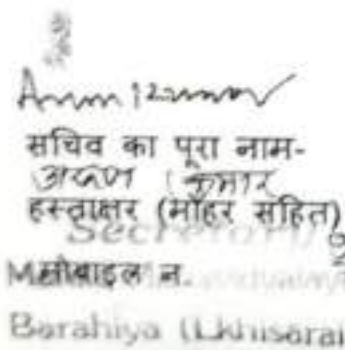 Arun Kumar
सचिव का पूरा नाम-
अरुण कुमार
हस्ताक्षर (मोहर सहित)
Secretary
मोबाइल न.
Barahiya (Lkhisarai